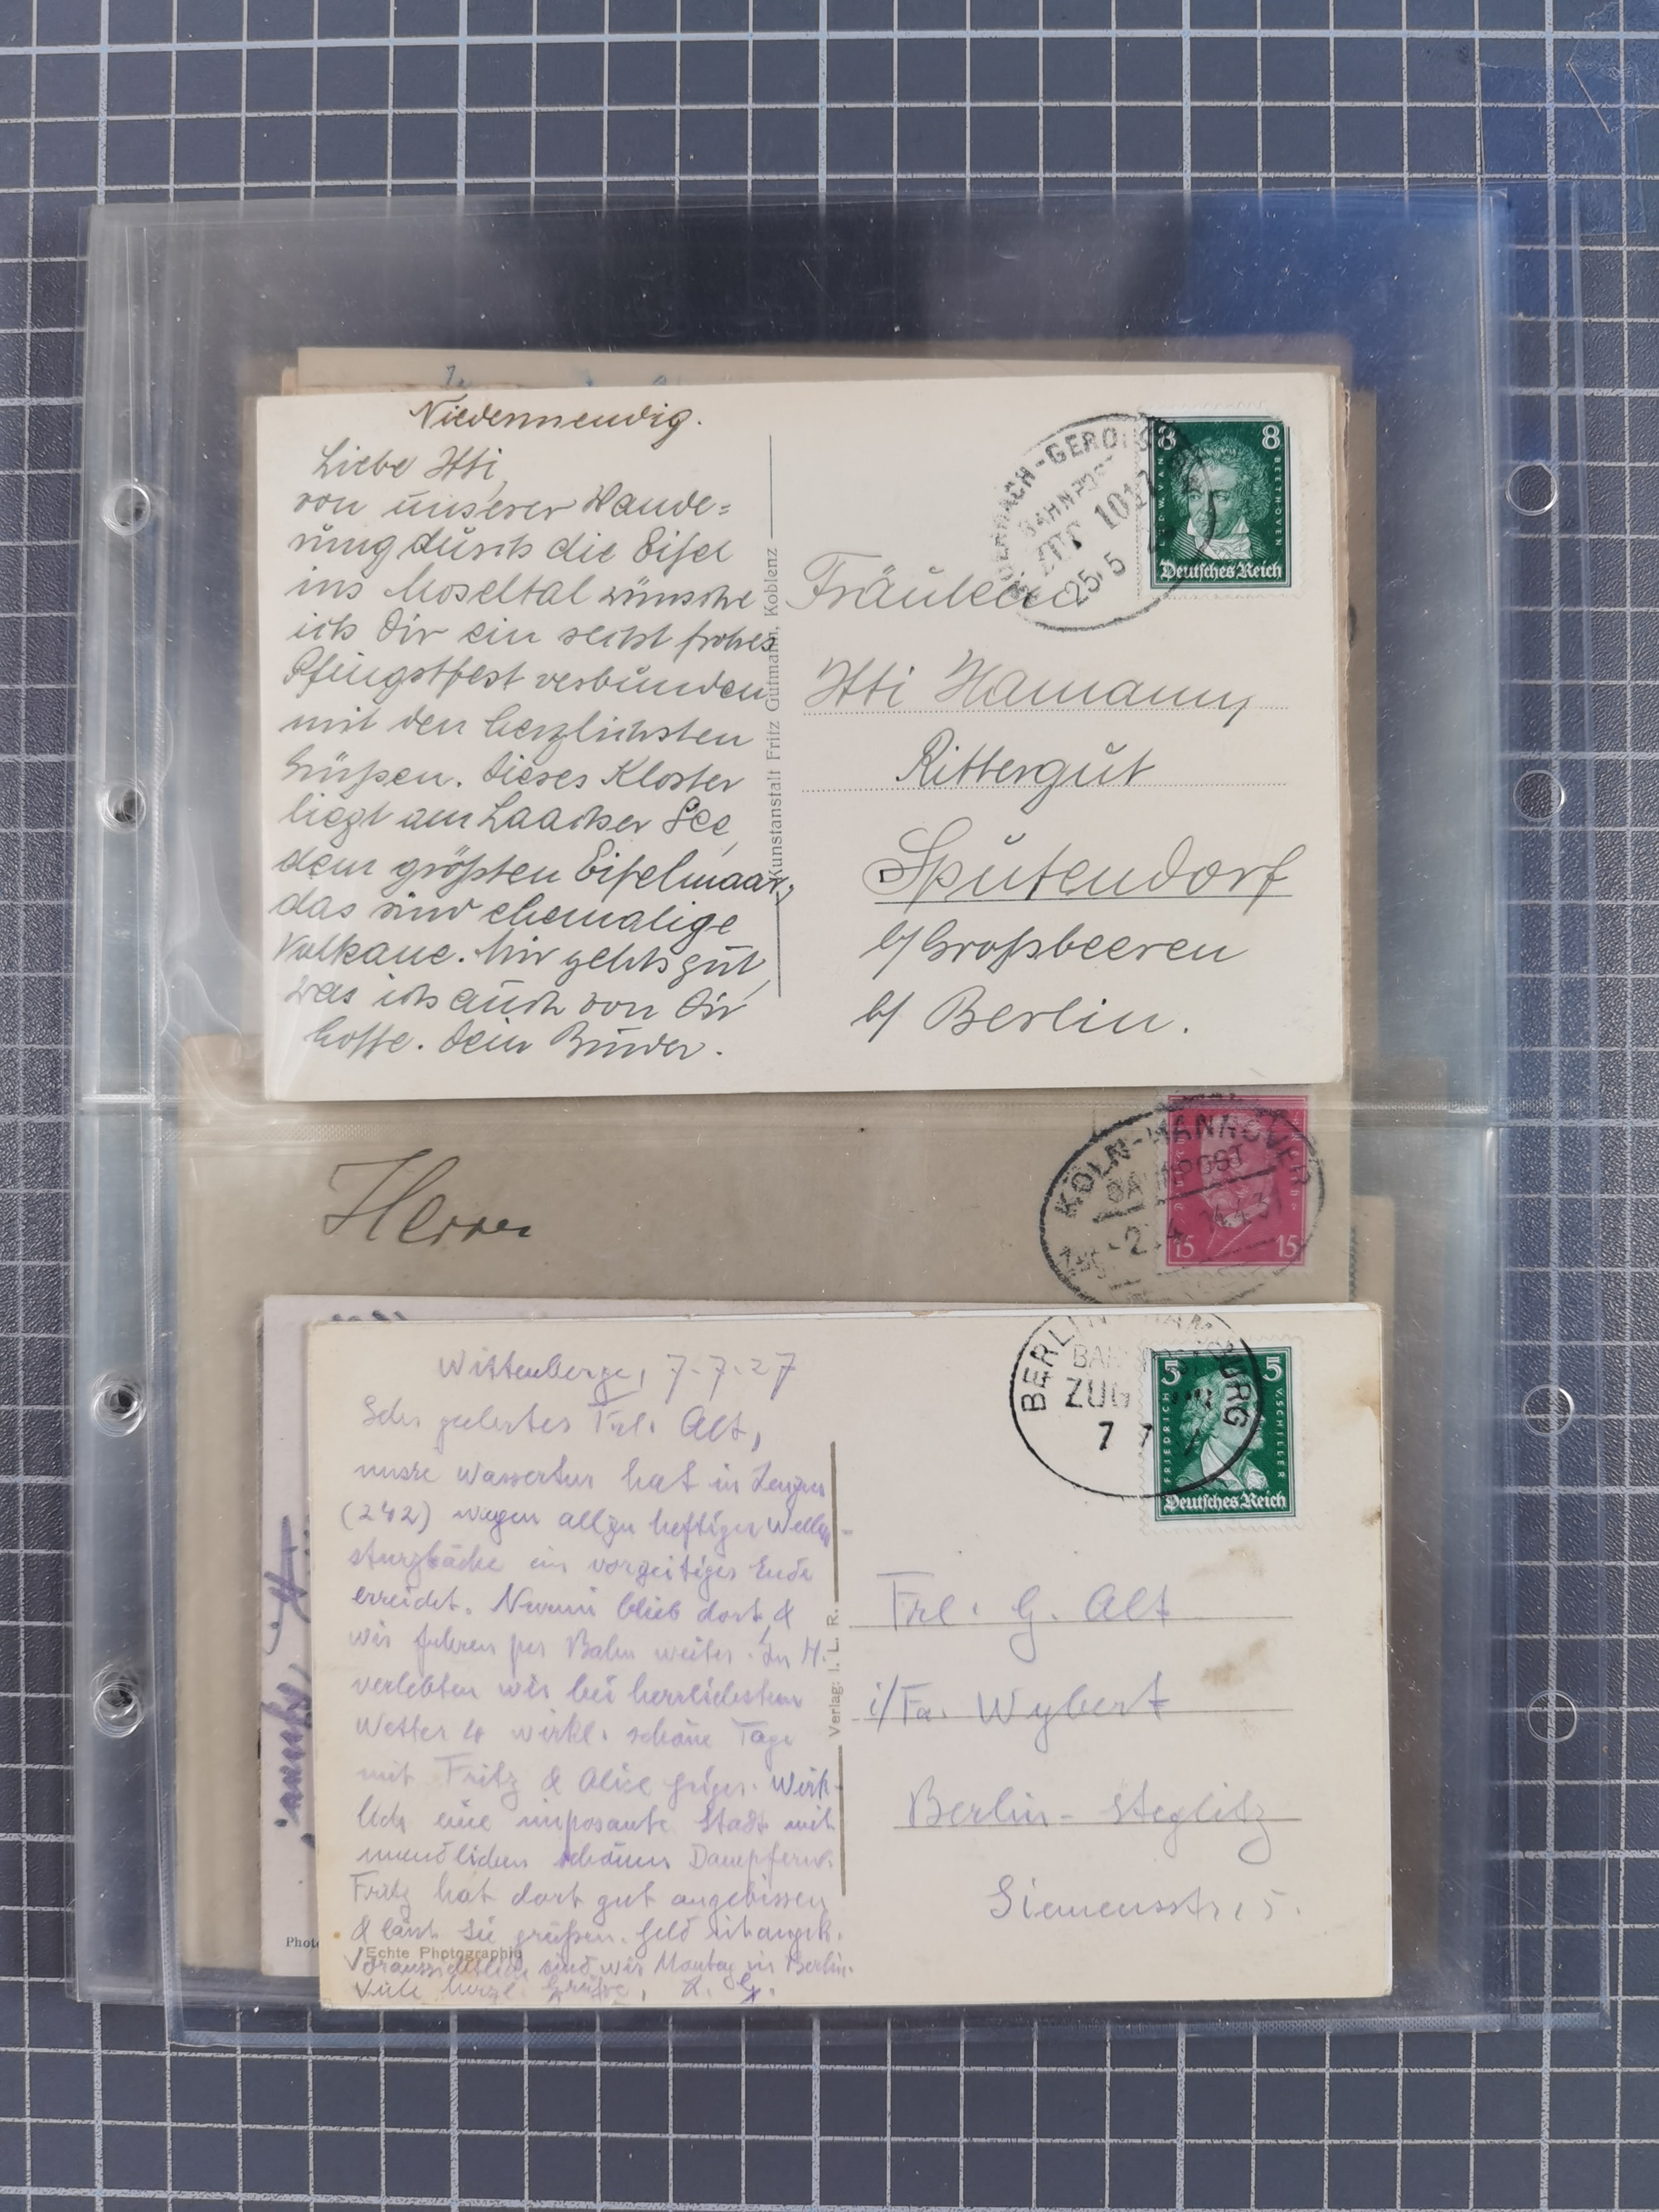 Niedermendig.
Liebe Itti,
von unserer Wande=
rung durch die Eifel
ins Moseltal wünsche
ich Dir ein recht frohes
Pfingstfest verbunden
mit den herzlichsten
Grüßen. Dieses Kloster
liegt am Laacher See,
dem größten Eifelmaar,
das sind ehemalige
Vulkane. Mir gehts gut,
was ich auch von Dir
hoffe. Dein Bruder.
Kunstanstalt Fritz Gutmann, Koblenz
ANDERNACH-GEROLST
BAHNPOST
ZUG 1012
25.5
8 8
LUDW. VAN BEETHOVEN
Deutsches Reich
Fräulein
Itti Hamann,
Rittergut
Sputendorf
b/ Großbeeren
b/ Berlin.
Herrn
KÖLN-HANNOVER
BAHNPOST
4.31
15 15
Wittenberge, 7.7.27
Sehr geehrtes Frl. Alt,
unsre Wassertour hat in Lenzen
(242) wegen allzu heftiger Wellen-
sturzbäche ein vorzeitiges Ende
erreicht. blieb dort, &
wir fuhren per Bahn weiter. In H.
verlebten wir bei herrlichstem
Wetter 4 wirkl. schöne Tage
mit Fritz & Alice Wirk-
lich eine imposante Stadt mit
unendlichen schönen
Fritz hat dort gut angebissen
& lässt Sie grüßen. Geld
Voraussichtlich sind wir Montag in Berlin.
Viele herzl. Grüße,
Echte Photographie
Verlag: I. L. R.
BERLIN HAMBURG
BAHNPOST
ZUG
7 7
5 5
FRIEDRICH V. SCHILLER
Deutsches Reich
Frl. G. Alt
i/Fa. Wybert
Berlin-Steglitz
Siemensstr.
Photo